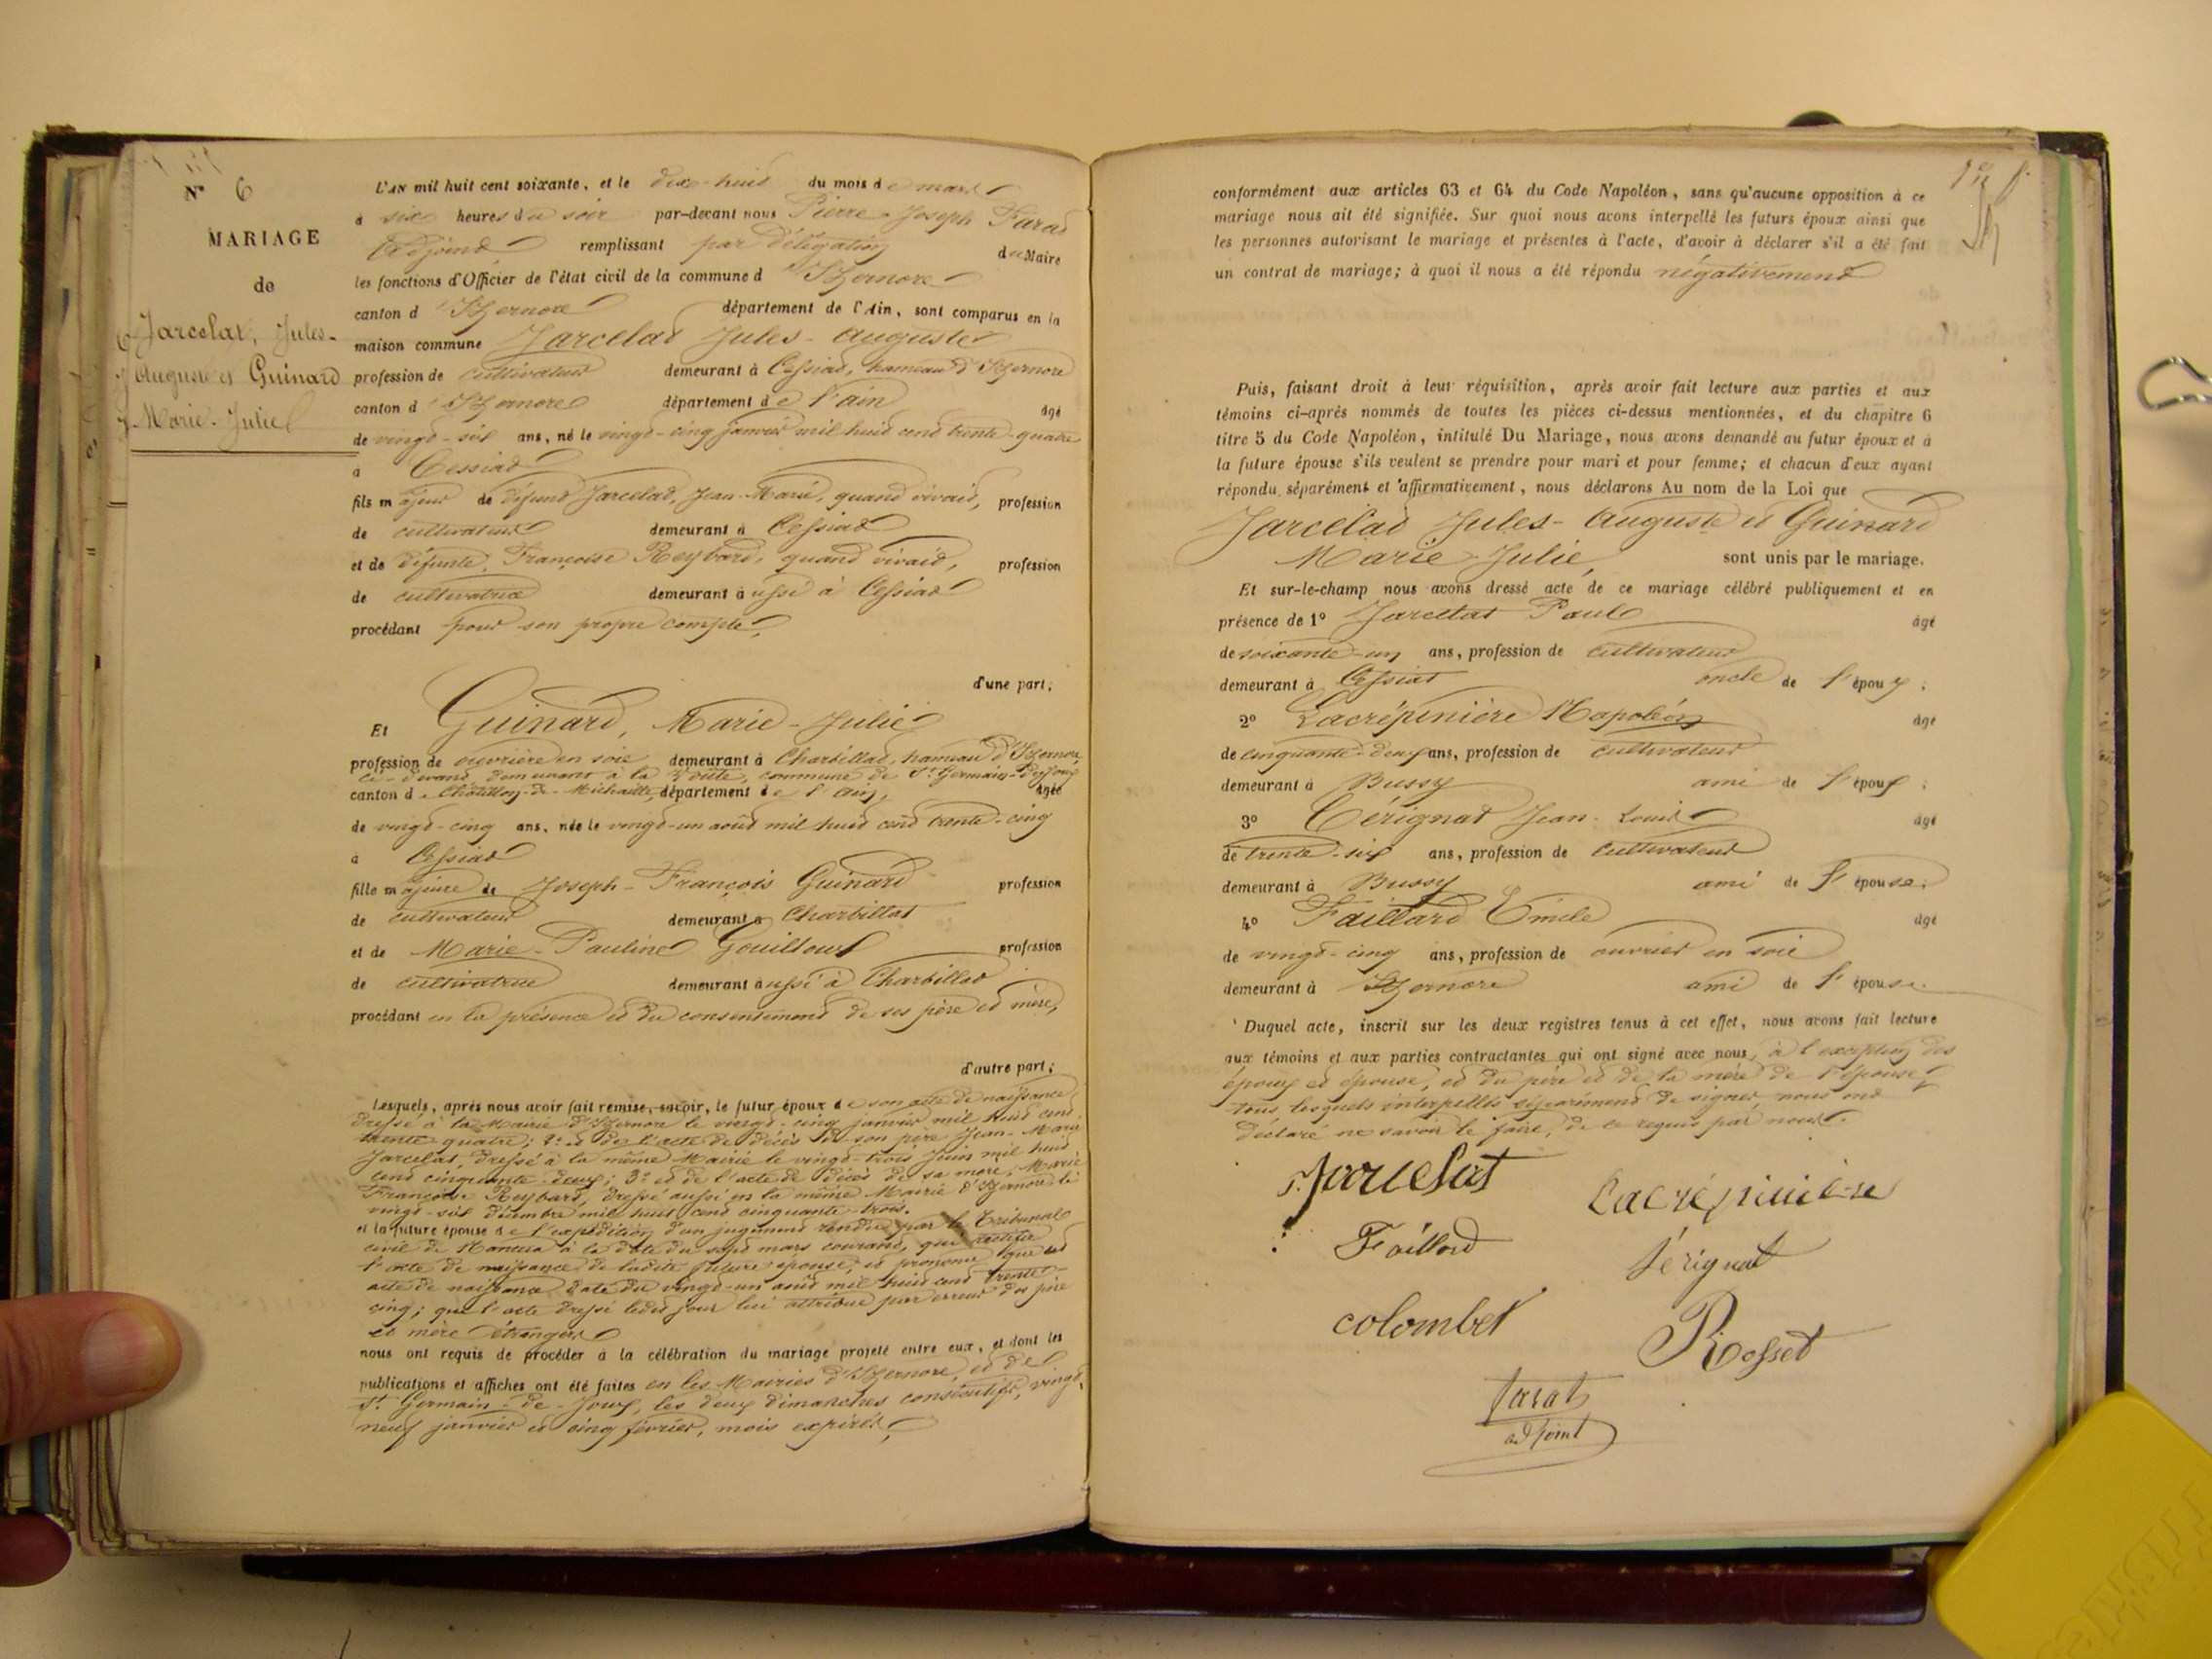 N° 6
MARIAGE
de
Jarcelat, Jules-
Auguste et Guinard
Marie-Julie
L'AN mil huit cent soixante, et le dix-huit du mois de mars
à six heures du soir par-devant nous Pierre-Joseph Tarat
Adjoint remplissant par délégation du Maire
les fonctions d'Officier de l'état civil de la commune d'Izernore
canton d'Izernore département de l'Ain, sont comparus en la
maison commune Jarcelat Jules-Auguste
profession de cultivateur demeurant à Cessiat, hameau d'Izernore
canton d'Izernore département de l'ain âgé
de vingt-six ans, né le vingt-cinq janvier mil huit cent trente-quatre
à Cessiat
fils majeur de défunt Jarcelat, Jean-Marie, quand vivait, profession
de cultivateur demeurant à Cessiat
et de défunte Françoise Reybard, quand vivait, profession
de cultivatrice demeurant aussi à Cessiat
procédant pour son propre compte,
d'une part;
Et Guinard, Marie-Julie
profession de ouvrière en soie demeurant à Charbillat, hameau d'Izernore
ci-devant demeurant à la Voûte, commune de St Germain-de-Joux
canton de Châtillon-de-Michaille, département de l'ain, âgée
de vingt-cinq ans, née le vingt-un août mil huit cent trente-cinq
à Cessiat
fille majeure de Joseph-François Guinard profession
de cultivateur demeurant à Charbillat
et de Marie-Pauline Gouilloux profession
de cultivatrice demeurant aussi à Charbillat
procédant en la présence et du consentement de ses père et mère,
d'autre part;
Lesquels, après nous avoir fait remise, savoir, le futur époux de son acte de naissance
dressé à la Mairie d'Izernore le vingt-cinq janvier mil huit cent
trente quatre; 2° et de l'acte de décès de son père Jean-Marie
Jarcelat, dressé à la même Mairie le vingt-trois juin mil huit
cent cinquante-deux; 3° et de l'acte de décès de sa mère, Marie
Françoise Reybard, dressé aussi en la même Mairie d'Izernore le
vingt-six décembre mil huit cent cinquante-trois.
et la future épouse de l'expédition d'un jugement rendu par le Tribunal
civil de Nantua à la date du sept mars courant, qui rectifie
l'acte de naissance de ladite future épouse, et prononce que
acte de naissance date du vingt-un août mil huit cent trente
cinq; que l'acte dressé ledit jour lui attribue par erreur des père
et mère étrangers
nous ont requis de procéder à la célébration du mariage projeté entre eux, et dont les
publications et affiches ont été faites en les Mairies d'Izernore, et de
St Germain-de-Joux, les deux dimanches consécutifs, vingt-
neuf janvier et cinq février, mois expirés,
conformément aux articles 63 et 64 du Code Napoléon, sans qu'aucune opposition à ce
mariage nous ait été signifiée. Sur quoi nous avons interpellé les futurs époux ainsi que
les personnes autorisant le mariage et présentes à l'acte, d'avoir à déclarer s'il a été fait
un contrat de mariage; à quoi il nous a été répondu négativement
Puis, faisant droit à leur réquisition, après avoir fait lecture aux parties et aux
témoins ci-après nommés de toutes les pièces ci-dessus mentionnées, et du chapitre 6
titre 5 du Code Napoléon, intitulé Du Mariage, nous avons demandé au futur époux et à
la future épouse s'ils veulent se prendre pour mari et pour femme; et chacun d'eux ayant
répondu séparément et affirmativement, nous déclarons Au nom de la Loi que
Jarcelat Jules-Auguste et Guinard
Marie-Julie, sont unis par le mariage.
Et sur-le-champ nous avons dressé acte de ce mariage célébré publiquement et en
présence de 1° Jarcelat Paul âgé
de soixante-un ans, profession de cultivateur
demeurant à Cessiat oncle de l'époux;
2° Lacrépinière Napoléon âgé
de cinquante-deux ans, profession de cultivateur
demeurant à Bussy ami de l'époux;
3° Cérignat Jean-Louis âgé
de trente-six ans, profession de cultivateur
demeurant à Bussy ami de l'épouse;
4° Faillard Emile âgé
de vingt-cinq ans, profession de ouvrier en soie
demeurant à Izernore ami de l'épouse.
Duquel acte, inscrit sur les deux registres tenus à cet effet, nous avons fait lecture
aux témoins et aux parties contractantes qui ont signé avec nous, à l'exception des
époux et épouse, et du père et de la mère de l'épouse,
tous lesquels interpellés séparément de signer, nous ont
déclaré ne savoir le faire, de ce requis par nous.
Jarcelat
Lacrépinière
Faillard
Sérignat
colombet
Rosset
Tarat
adjoint